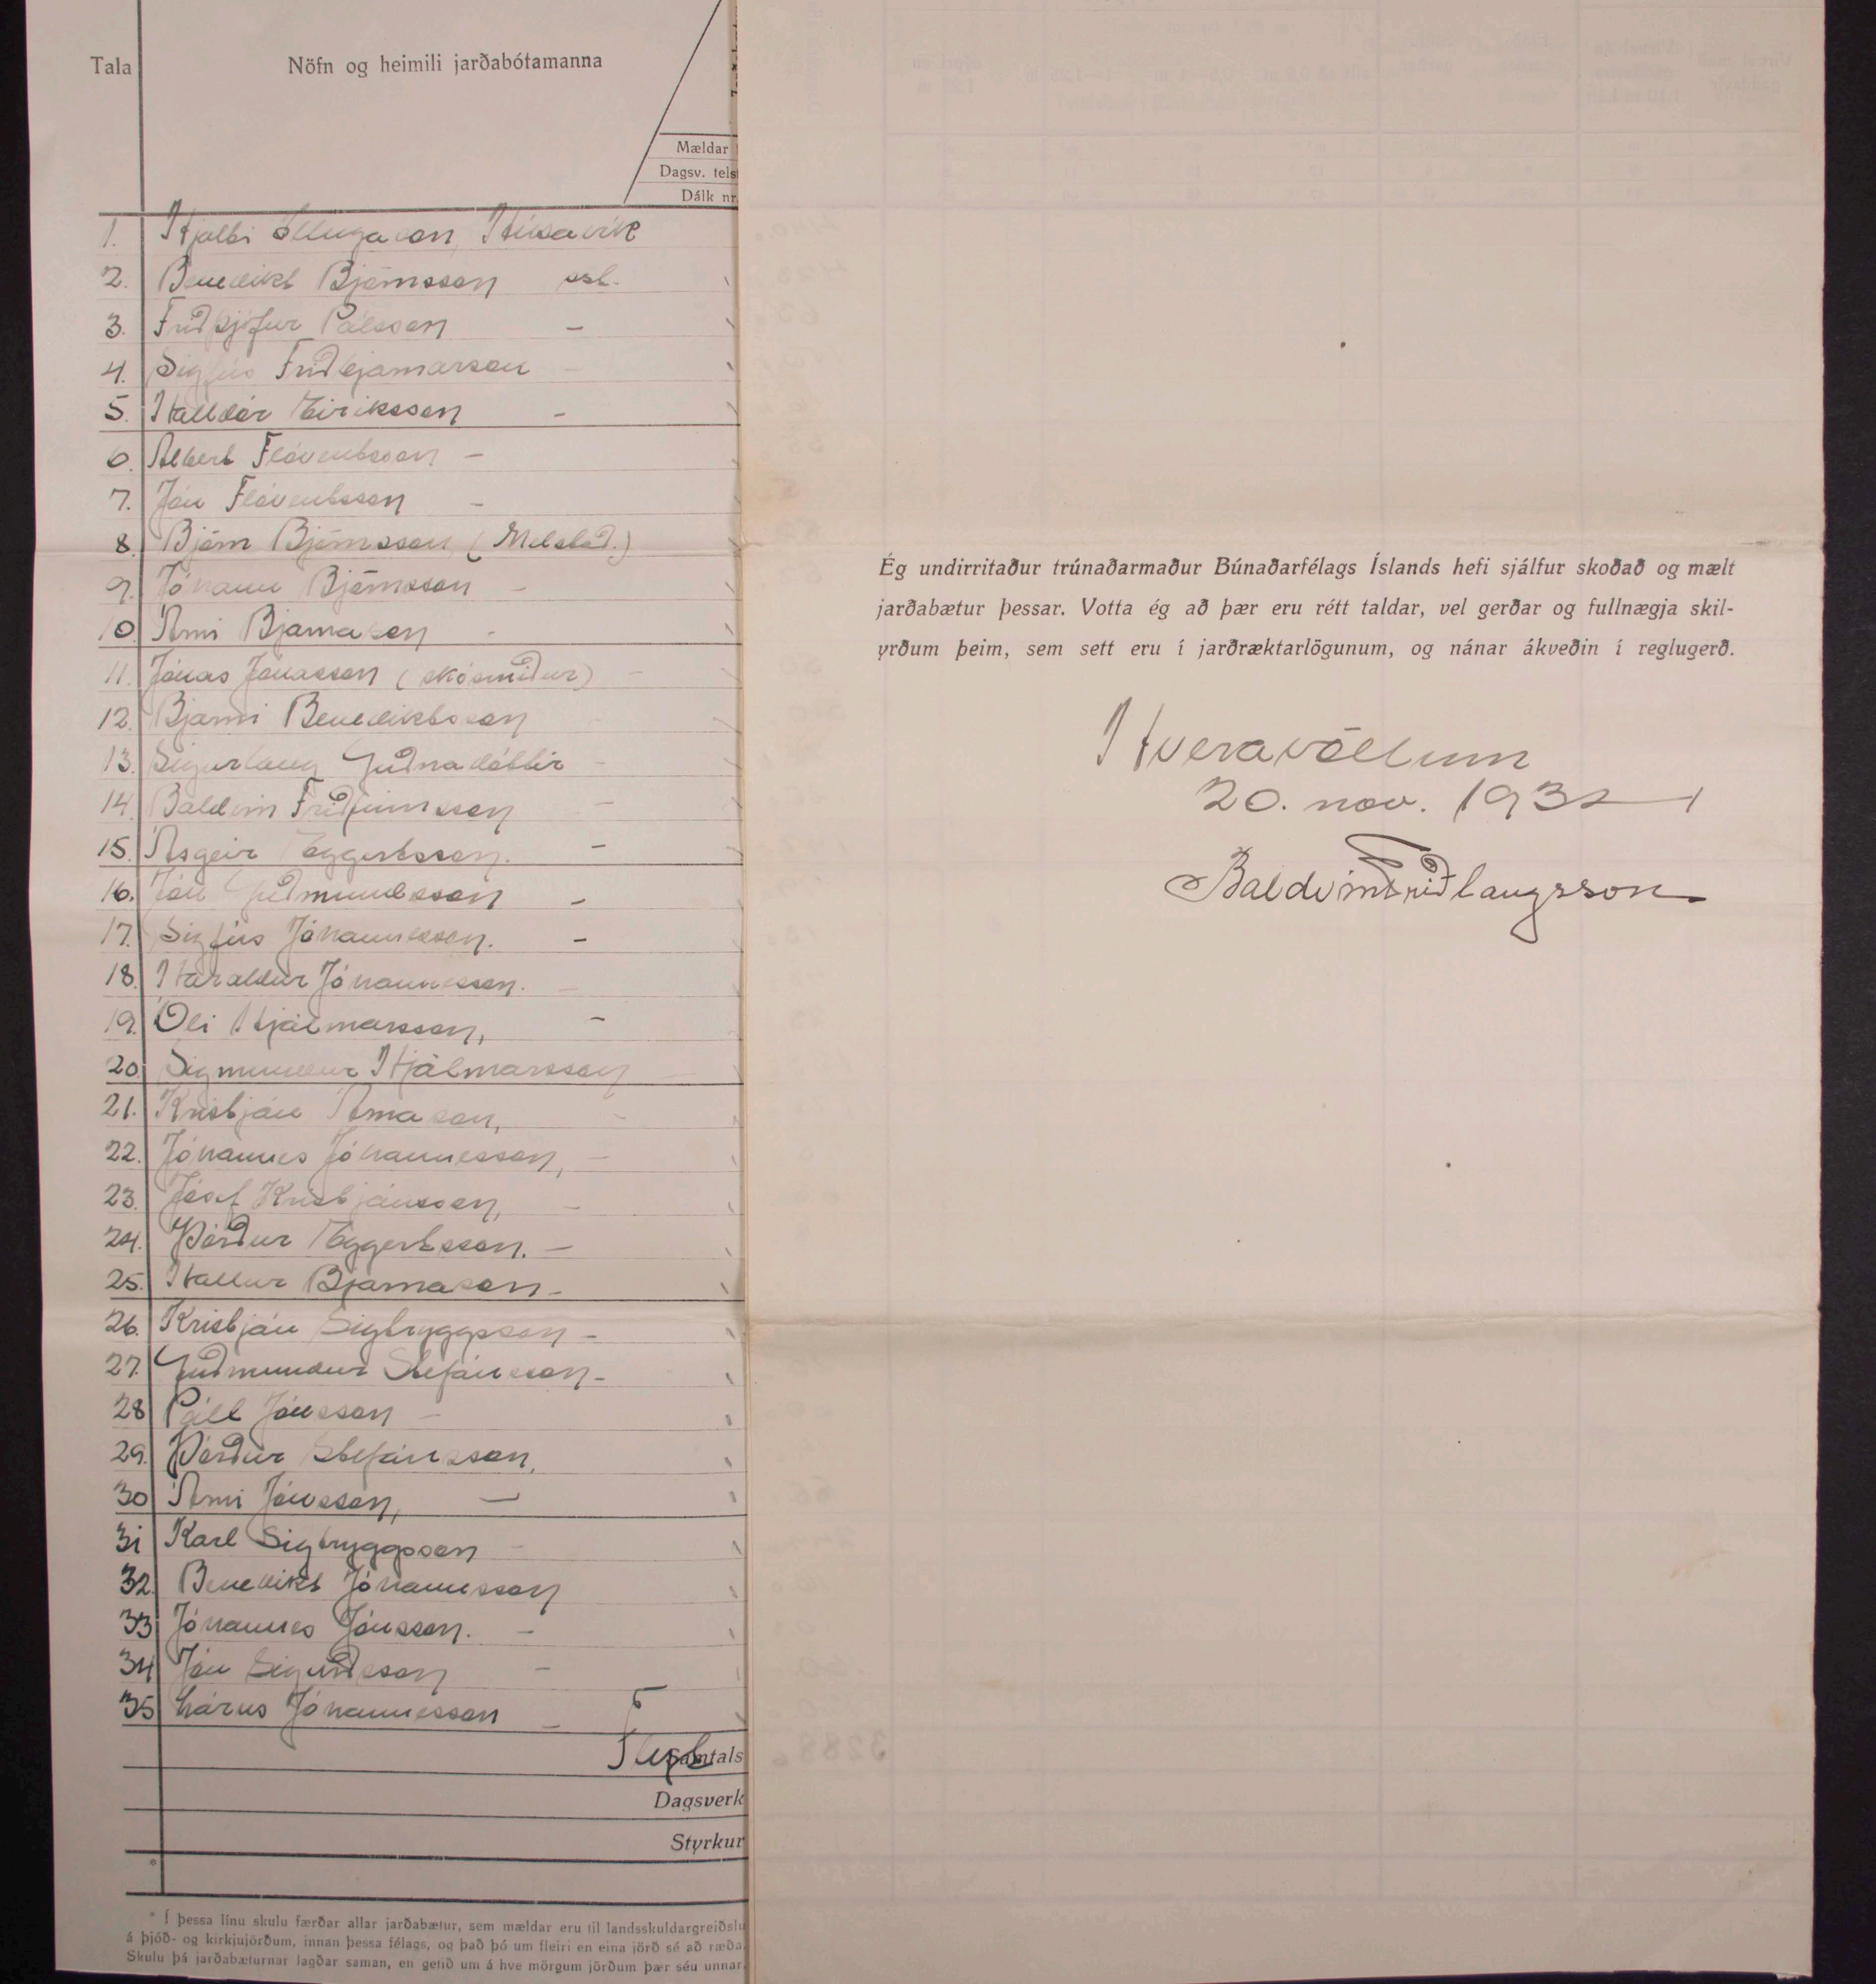 Tala
Nöfn og heimili jarðabótamanna
Mældar
Dagsv. tels
Dálk nr.
1. Hjalti Illugason, Húsavík
2. Benedikt Björnsson vsl.
3. Friðþjófur Pálsson –
4. Sigfús Friðbjarnarson –
5. Halldór Eiríksson –
6. Albert Flóventsson –
7. Jón Flóventsson –
8. Björn Björnsson (Melstað.)
9. Jóhann Björnsson –
10. Árni Bjarnason -
11. Jónas Jónasson (skósmiður) –
12. Bjarni Benediktsson
13. Sigurlaug Guðnadóttir –
14. Baldvin Friðfinnsson –
15. Ásgeir Eggertsson. –
16. Jón Guðmundsson –
17. Sigfús Jóhannesson. –
18. Haraldur Jóhannesson. –
19. Óli Hjálmarsson, –
20. Sigmundur Hjálmarsson –
21. Kristján Árnason, –
22. Jóhannes Jóhannesson, –
23. Jósef Kristjánsson, –
24. Þórður Eggertsson. –
25. Hallur Bjarnason –
26. Kristján Sigtryggsson –
27. Guðmundur Stefánsson –
28 Páll Jónsson –
29. Þórður Stefánsson,
30 Árni Jónsson, –
31 Karl Sigtryggsson –
32. Benedikt Jóhannsson
33 Jóhannes Jónsson. –
34 Jón Sigurðsson –
35 Lárus Jóhannesson –
Flutt
Samtals
Dagsverk
Styrkur
* Í þessa línu skulu færðar allar jarðabætur, sem mældar eru til landsskuldargreiðslu
á þjóð- og kirkjujörðum, innan þessa félags, og það þó um fleiri en eina jörð sé að ræða.
Skulu þá jarðabæturnar lagðar saman, en getið um á hve mörgum jörðum þær séu unnar.
Ég undirritaður trúnaðarmaður Búnaðarfélags Íslands hefi sjálfur skoðað og mælt
jarðabætur þessar. Votta ég að þær eru rétt taldar, vel gerðar og fullnægja skil-
yrðum þeim, sem sett eru í jarðræktarlögunum, og nánar ákveðin í reglugerð.
Hveravöllum
20. nov. 1932
Baldvin Friðlaugsson